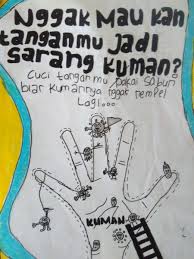 Nggak Mau kan
tanganmu Jadi
Sarang Kuman?
Cuci tanganmu pakai Sabun
biar kumannya nggak nempel
Lagi...
KUMAN